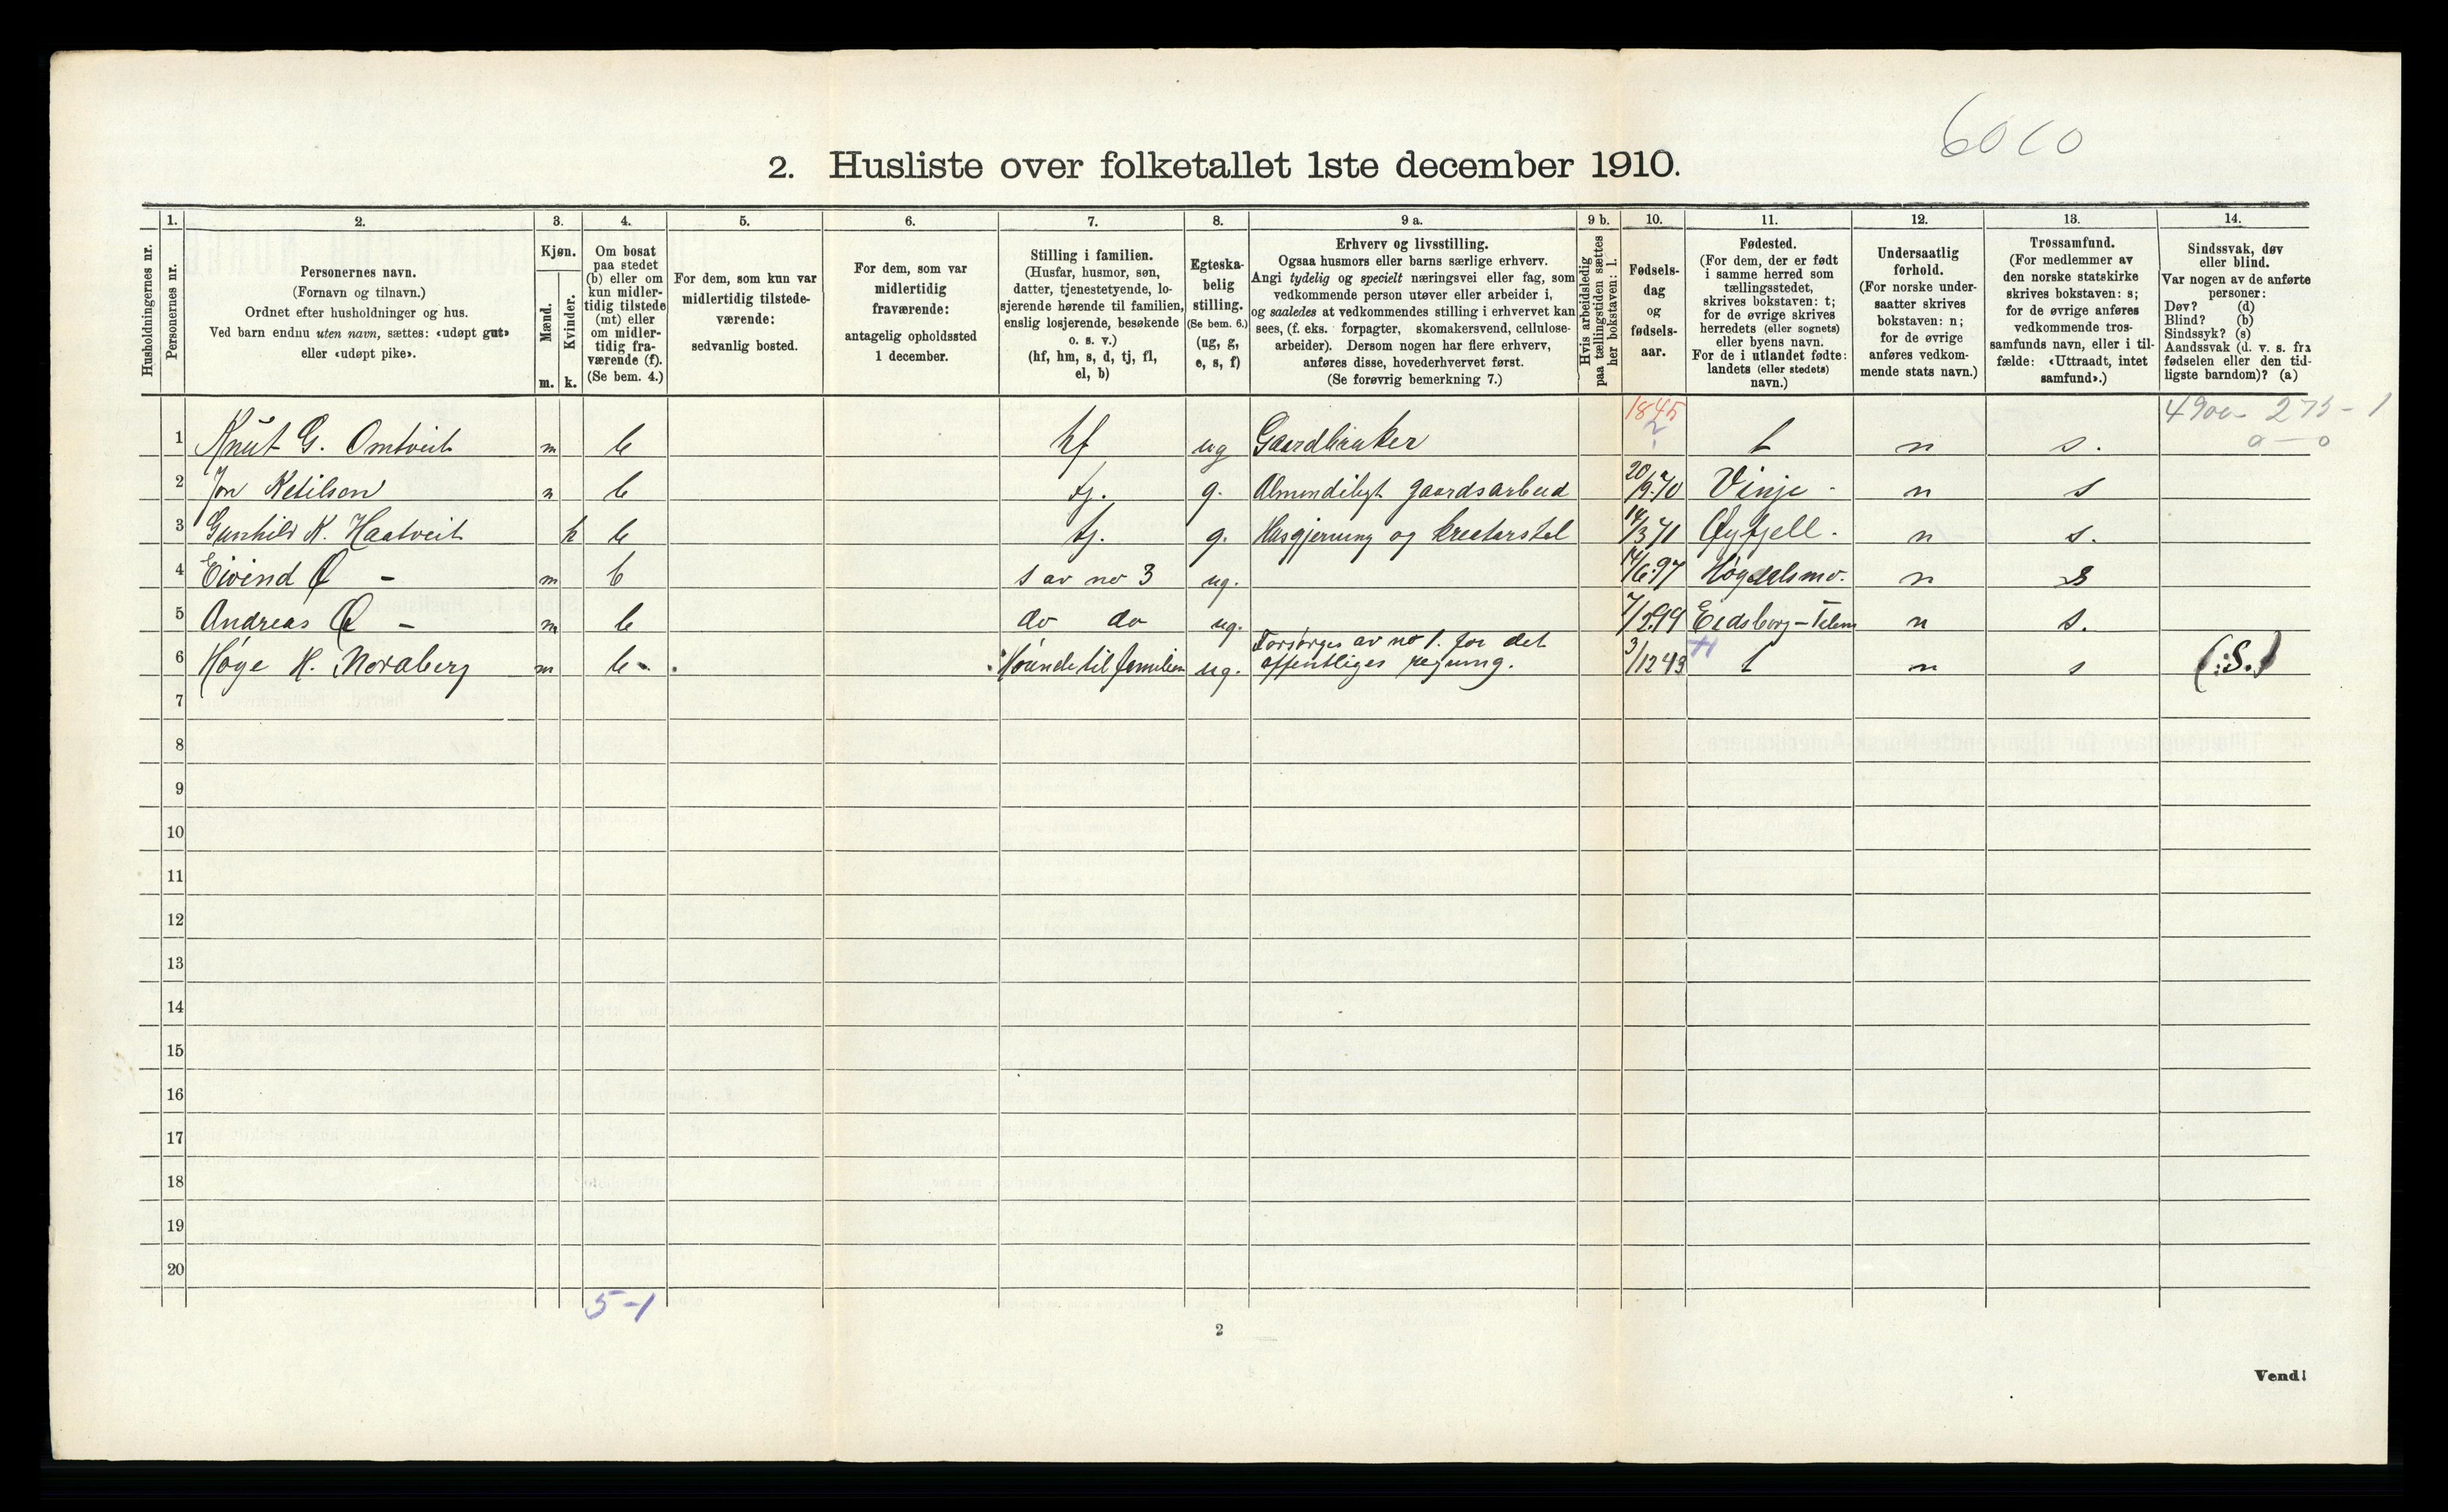 6010
2. Husliste over folketallet 1ste december 1910.
Husholdningernes nr.
1. Personernes nr.
2. Personernes navn. (Fornavn og tilnavn.) Ordnet efter husholdninger og hus. Ved barn endnu uten navn, sættes: «udøpt gut» eller «udøpt pike».
3. Kjøn. Mænd. m. Kvinder. k.
4. Om bosat paa stedet (b) eller om kun midlertidig tilstede (mt) eller om midlertidig fraværende (f). (Se bem. 4.)
5. For dem, som kun var midlertidig tilstedeværende: sedvanlig bosted.
6. For dem, som var midlertidig fraværende: antagelig opholdssted 1 december.
7. Stilling i familien. (Husfar, husmor, søn, datter, tjenestetyende, losjerende hørende til familien, enslig losjerende, besøkende o. s. v.) (hf, hm, s, d, tj, fl, el, b)
8. Egteskabelig stilling. (Se bem. 6.) (ug, g, e, s, f)
9 a. Erhverv og livsstilling. Ogsaa husmors eller barns særlige erhverv. Angi tydelig og specielt næringsvei eller fag, som vedkommende person utøver eller arbeider i, og saaledes at vedkommendes stilling i erhvervet kan sees, (f. eks. forpagter, skomakersvend, cellulosearbeider). Dersom nogen har flere erhverv, anføres disse, hovederhvervet først. (Se forøvrig bemerkning 7.)
9 b. Hvis arbeidsledig paa tællingstiden sættes her bokstaven: l.
10. Fødselsdag og fødselsaar.
11. Fødested. (For dem, der er født i samme herred som tællingsstedet, skrives bokstaven: t; for de øvrige skrives herredets (eller sognets) eller byens navn. For de i utlandet fødte: landets (eller stedets) navn.)
12. Undersaatlig forhold. (For norske undersaatter skrives bokstaven: n; for de øvrige anføres vedkommende stats navn.)
13. Trossamfund. (For medlemmer av den norske statskirke skrives bokstaven: s; for de øvrige anføres vedkommende trossamfunds navn, eller i tilfælde: «Uttraadt, intet samfund».)
14. Sindssvak, døv eller blind. Var nogen av de anførte personer: Døv? (d) Blind? (b) Sindssyk? (s) Aandssvak (d. v. s. fra fødselen eller den tidligste barndom)? (a)
275 - 1
0 — 0
1 Knut G. Omtveit m b hf ug Gaardbruker 1845 t n s.
2 Jon Ketilson m b tj. g. Almindeligt gaardsarbeid 20/9.70 Vinje n s
3 Gunhild K. Haatveit k b tj. g. Husgjerning og kreaturstel 14/3 71 Øyfjell n s.
4 Eivind Ø — m b s av no 3 ug. 14/6.97 Høydalsmo. n s
5 Andreas Ø — m b do do ug. 7/2.99 Eidsborg - Telem n s.
6 Høge H. Nordberg m b ug. Forsørges av no 1. for det offentliges regning. 3/12 43 t n s (:S.)
7
8
9
10
11
12
13
14
15
16
17
18
19
20
5-1
2
Vend!